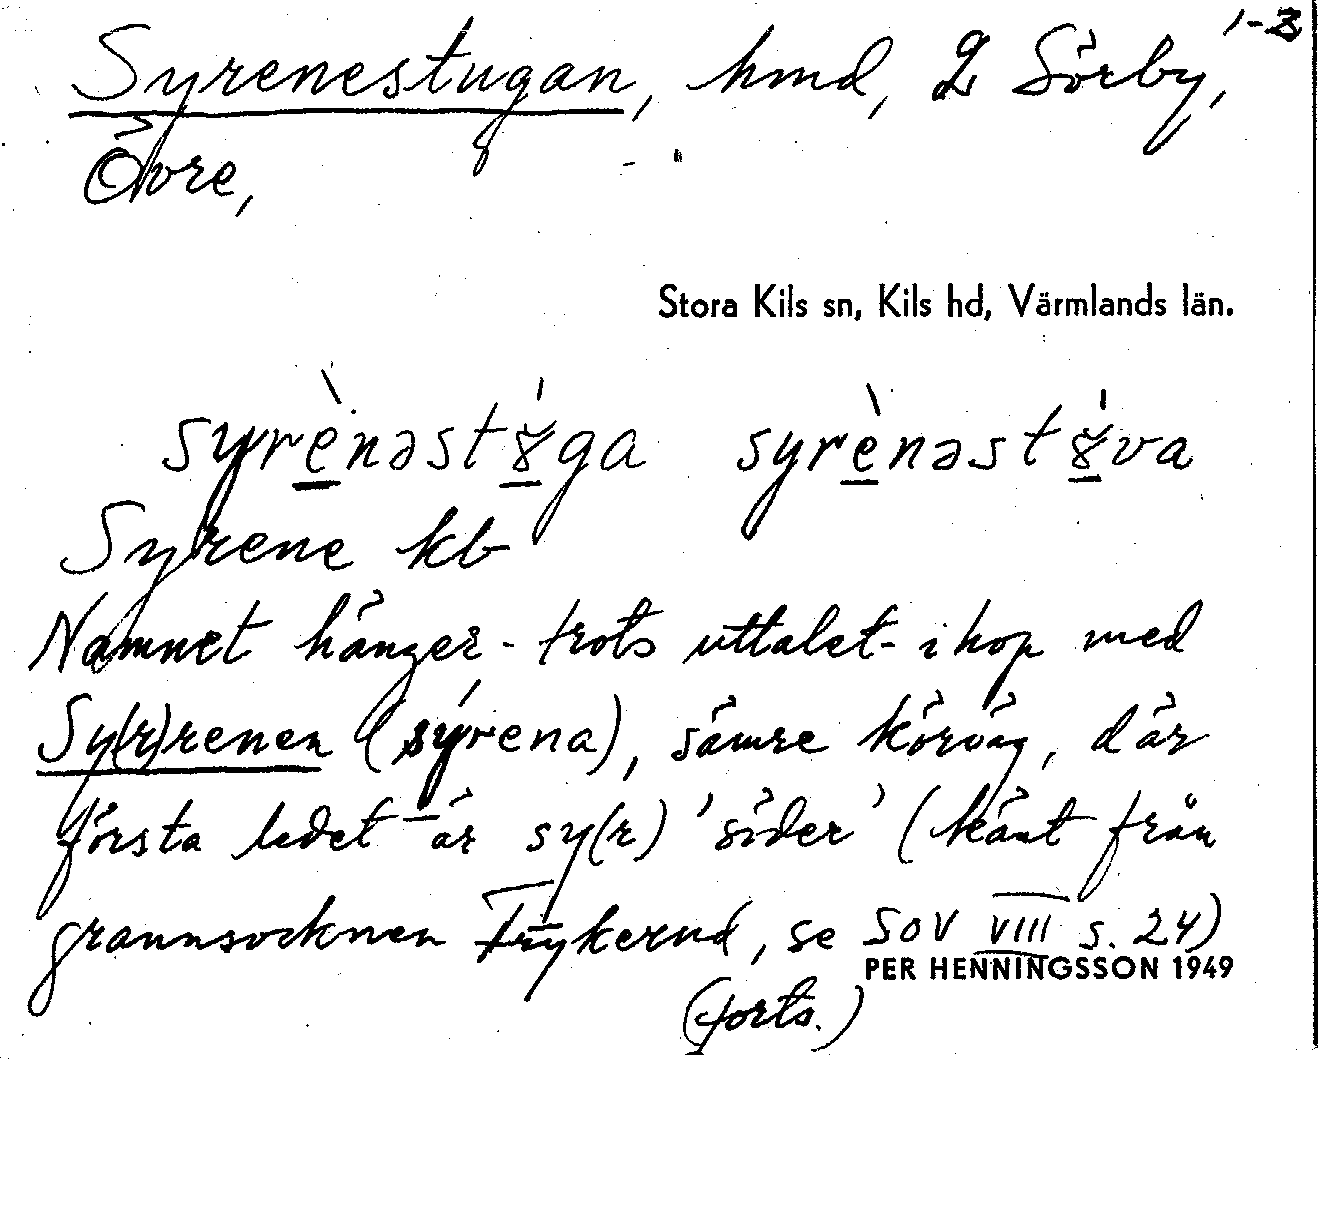 1-3
Syrenestugan, hmd, L Sörby,
Övre,
Stora Kils sn, Kils hd, Värmlands län.
syrènəstɤ́ga syrènəstɤ́va
Syrene kb
Namnet hänger - trots uttalet - ihop med
Sy(r)renen (sýrena), sämre körväg, där
första ledet är sy(r) 'söder' (känt från
grannsocknen Frykerud, se SOV VIII s. 24)
PER HENNINGSSON 1949
(forts.)